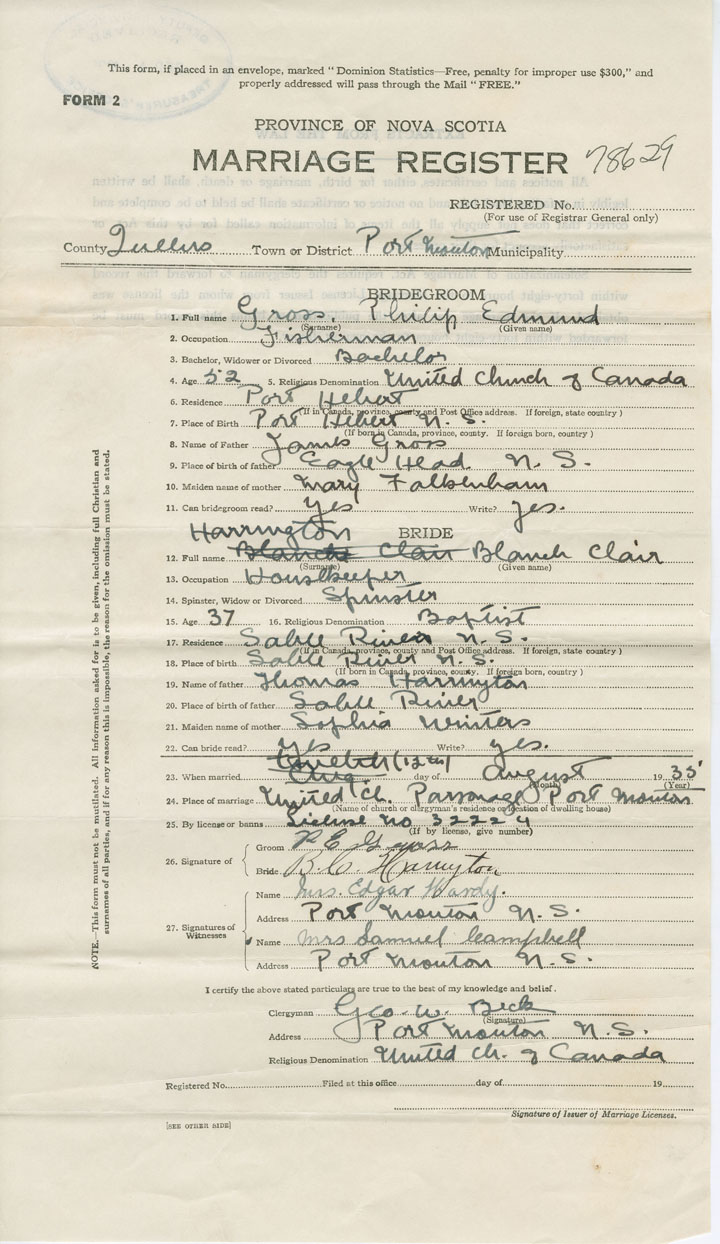 This form, if placed in an envelope, marked "Dominion Statistics—Free, penalty for improper use $300," and
properly addressed will pass through the Mail "FREE."
FORM 2
PROVINCE OF NOVA SCOTIA
MARRIAGE REGISTER 78629
REGISTERED No.
(For use of Registrar General only)
County Queens Town or District Port Mouton Municipality
BRIDEGROOM
1. Full name Gross, Philip Edmund
(Surname) (Given name)
2. Occupation Fisherman
3. Bachelor, Widower or Divorced Bachelor
4. Age 52 5. Religious Denomination United Church of Canada
6. Residence Port Hebert
(If in Canada, province, county and Post Office address. If foreign, state country)
7. Place of Birth Port Hebert N. S.
(If born in Canada, province, county. If foreign born, country)
8. Name of Father James Gross
9. Place of birth of father Eagle Head N. S.
10. Maiden name of mother Mary Falkenham
11. Can bridegroom read? yes Write? yes.
Harrington BRIDE
12. Full name Blanch Clair Blanch Clair
(Surname) (Given name)
13. Occupation Houskeeper
14. Spinster, Widow or Divorced Spinster
15. Age 37 16. Religious Denomination Baptist
17. Residence Sable River N. S.
(If in Canada, province, county and Post Office address. If foreign, state country)
18. Place of birth Sable River N. S.
(If born in Canada, province, county. If foreign born, country)
19. Name of father Thomas Harrington
20. Place of birth of father Sable River
21. Maiden name of mother Sophia Winters
22. Can bride read? yes Write? yes.
(12th)
23. When married Aug. day of August 1935
(Month) (Year)
24. Place of marriage United Ch. Parsonage Port Mouton
(Name of church or clergyman's residence or location of dwelling house)
25. By license or banns License no 32224
(If by license, give number)
26. Signature of Groom P E Gross
Bride B. C. Harrington
27. Signatures of Witnesses Name Mrs. Edgar Hardy.
Address Port Mouton N. S.
Name Mrs Samuel Campbell
Address Port Mouton N. S.
I certify the above stated particulars are true to the best of my knowledge and belief.
Clergyman Geo. W. Beck
(Signature)
Address Port Mouton N. S.
Religious Denomination United Ch. of Canada
Registered No. Filed at this office day of 19
Signature of Issuer of Marriage Licenses.
[SEE OTHER SIDE]
NOTE.—This form must not be mutilated. All information asked for is to be given, including full Christian and
surnames of all parties, and if for any reason this is impossible, the reason for the omission must be stated.